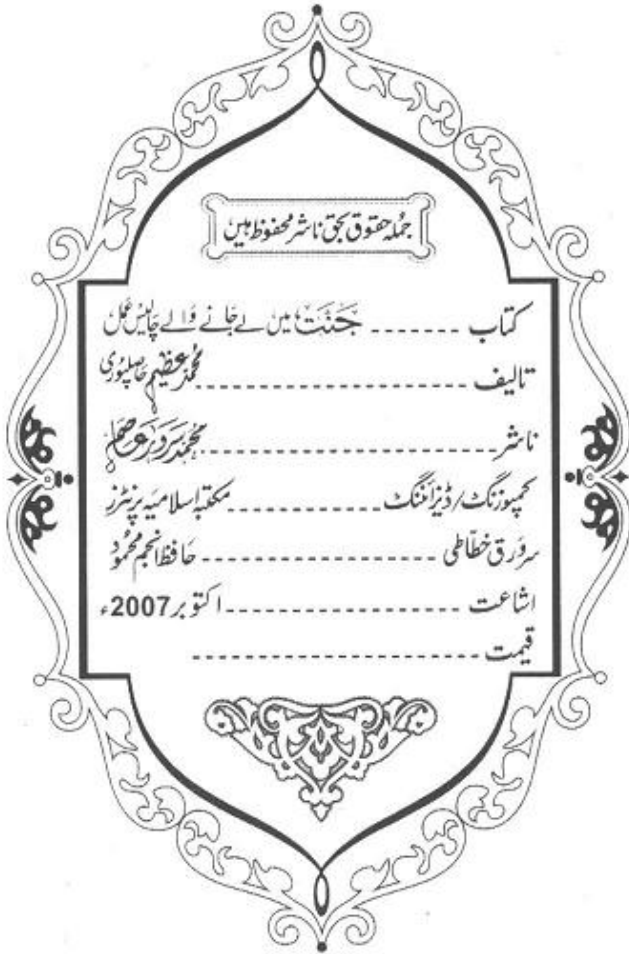 جملہ حقوق بحق ناشر محفوظ ہیں
کتاب ------- جنت میں لے جانے والے چالیس عمل
تالیف ------------------- محمد عظیم حاصلپوری
ناشر ------------------- محمد سرور عاصم
کمپوزنگ/ڈیزائننگ ---------- مکتبہ اسلامیہ پرنٹرز
سرورق خطاطی --------------- حافظ انجم محمود
اشاعت ---------------- اکتوبر 2007ء
قیمت -------------------